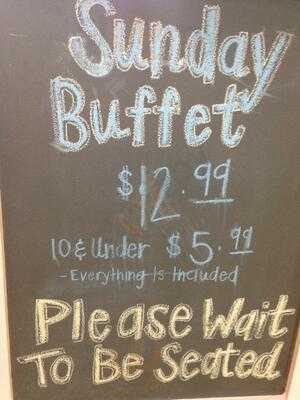 Sunday
Buffet
$12.99
10 & Under $5.99
- Everything Is Included
Please Wait
To Be Seated